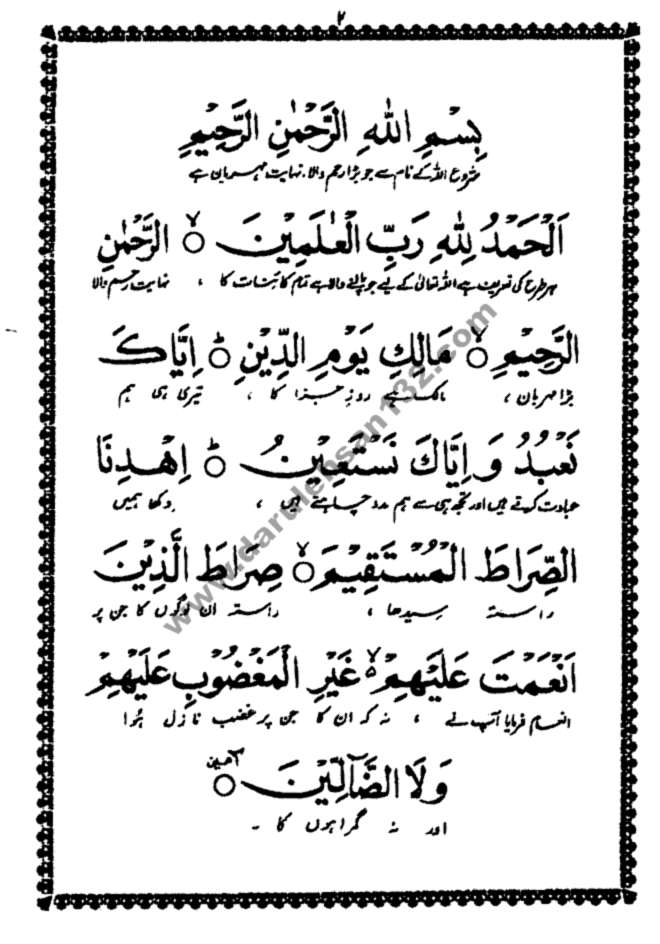 ۲
بِسْمِ اللهِ الرَّحْمٰنِ الرَّحِيْمِ
شروع اللہ کے نام سے جو بڑا رحم والا، نہایت مہربان ہے
اَلْحَمْدُ لِلّٰهِ رَبِّ الْعٰلَمِيْنَ ۙ○ الرَّحْمٰنِ
ہر طرح کی تعریف ہے اللہ تعالیٰ کے لیے جو پالنے والا ہے تمام کائنات کا ، نہایت رحم والا
الرَّحِيْمِ ۙ○ مَالِكِ يَوْمِ الدِّيْنِ ○ؕ اِيَّاكَ
بڑا مہربان ، مالک ہے روزِ جزا کا ، تیری ہی ہم
نَعْبُدُ وَ اِيَّاكَ نَسْتَعِيْنُ ○ؕ اِهْدِنَا
عبادت کرتے ہیں اور تجھ ہی سے ہم مدد چاہتے ہیں ، دکھا ہمیں
الصِّرَاطَ الْمُسْتَقِيْمَ ۙ○ صِرَاطَ الَّذِيْنَ
راستہ سیدھا ، راستہ ان لوگوں کا جن پر
اَنْعَمْتَ عَلَيْهِمْ ۙ○ غَيْرِ الْمَغْضُوْبِ عَلَيْهِمْ
انعام فرمایا آپ نے ، نہ کہ ان کا جن پر غضب نازل ہُوا
وَلَا الضَّآلِّيْنَ ○ آمین
اور نہ گمراہوں کا ۔
www.darulehsan132.com